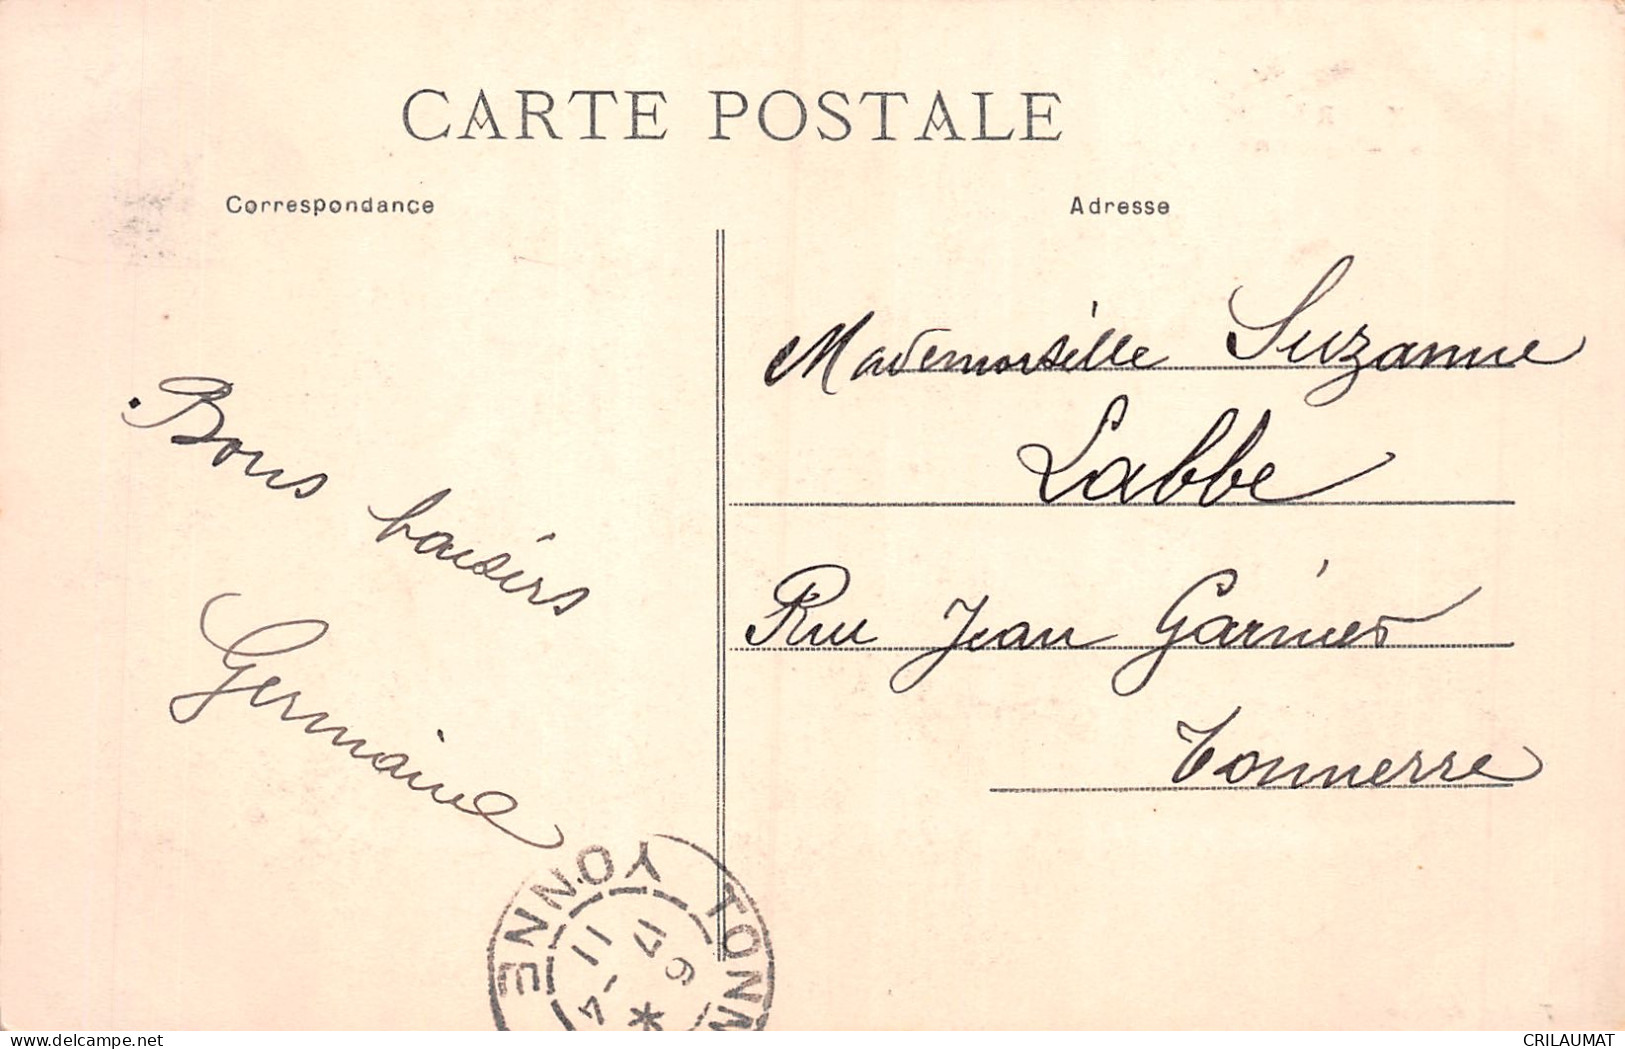 CARTE POSTALE
Correspondance
Adresse
Bons baisers
Germaine
Mademoiselle Suzanne
Labbe
Rue Jean Garnier
Tonnerre
YONNE
TONN
delcampe.net
CRILAUMAT